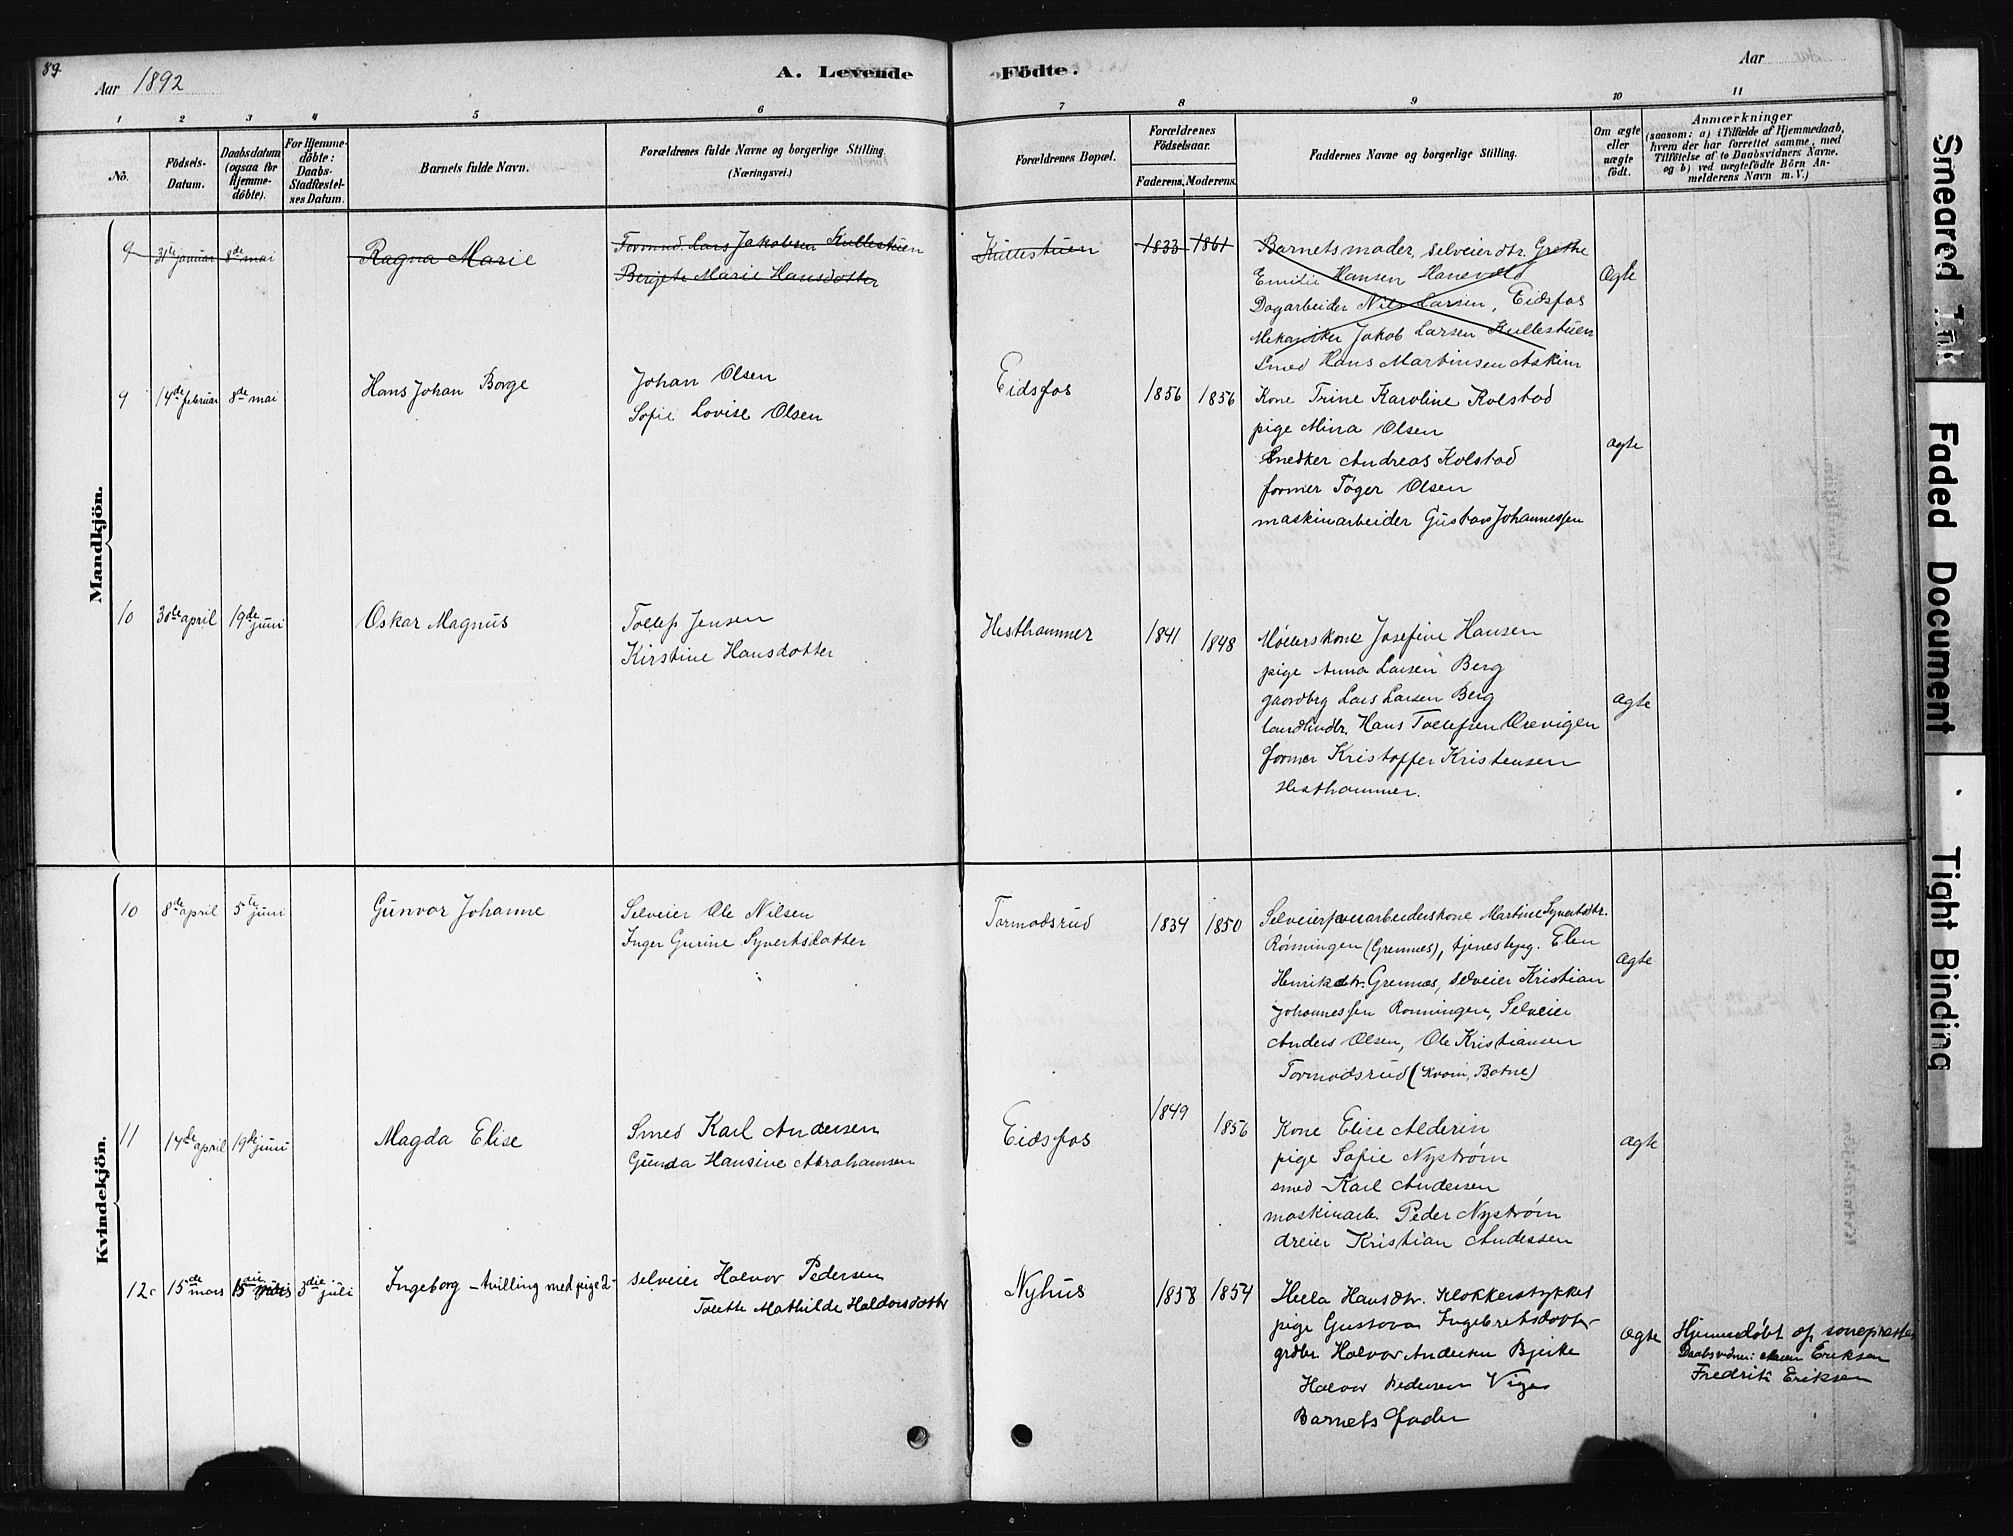 89
Aar 1892
A. Levende
Födte.
Aar
1 2 3 4 5 6 7 8 9 10 11
No.
Födsels-
Datum.
Daabsdatum
(ogsaa for
Hjemme-
döbte).
For Hjemme-
döbte:
Daabs-
Stadfæstel-
ses Datum.
Barnets fulde Navn.
Forældrenes fulde Navne og borgerlige Stilling.
(Næringsvei.)
Forældrenes Bopæl.
Forældrenes
Födselsaar.
Faderens. Moderens.
Faddernes Navne og borgerlige Stilling.
Om ægte
eller
uægte
födt.
Anmærkninger
(saasom: a) i Tilfælde af Hjemmedaab,
hvem der har forrettet samme, med
Tilföielse af to Daabsvidners Navne.
og b) ved uægtefödte Börn An-
melderens Navn m. V.)
Mandkjön.
9 31te januar 8de mai
Ragna Marie
Tormud Lars Jakobsen Kullestuen
Bergete Marie Hansdotter
Kullestuen
1833 1861
Barnets moder, selveierdtr. Grethe
Emilie Hansen Hanevold
Dagarbeider Nils Larsen, Eidsfos
Mekaniker Jakob Larsen Kullestuen
Smed Hans Martinsen Askim
Ægte
9 14de februar 8de mai
Hans Johan Borge
Johan Olsen
Sofie Lovise Olsen
Eidsfos
1856 1856
Kone Trine Karoline Kolstad
pige Mina Olsen
Snedker Andreas Kolstad
former Töger Olsen
maskinarbeider Gustav Johannessen
ægte
10 30de april 19de juni
Oskar Magnus
Tollef Jensen
Kirstine Hansdotter
Hesthammer
1841 1848
Møllerskone Josefine Hansen
pige Anna Larsen Berg
gaardbrg Lars Larsen Berg
landhndlr. Hans Tollefsen Orevigen
former Kristoffer Kristensen
Hesthammer.
ægte
Kvindekjön.
10 8de april 5te juni
Gunvor Johanne
Selveier Ole Nilsen
Inger Gurine Syvertsdatter
Tormodsrud
1834 1850
Martine Syvertsdtr.
Rønningen (Grennes), tjenestpg. Elen
Henriksdtr. Grennes, selveier Kristian
Johannessen Rønningen, Selveier
Anders Olsen, Ole Kristiansen
Tormodsrud (Kvam, Botne)
ægte
11 14de april 19de juni
Magda Elise
Smed Karl Andersen
Gunda Hansine Abrahamsen
Eidsfos
1849 1856
Kone Elise Alderin
pige Sofie Nystrøm
smed Karl Andersen
maskinarb. Peder Nystrøm
dreier Kristian Andersen
ægte
12 15de mars 3die juli
Ingeborg - tvilling med pige 2-
selveier Halvor Pedersen
Tolette Mathilde Haldorsdatter
Nyhus
1858 1854
Hella Hansdtr. Klokkerstykket
pige Gustava Ingebretsdotter
grdbr. Halvor Andersen Bjerke
Halvor Pedersen
Barnets Fader
ægte
Hjemmedøbt af sogneprsten
Daabsvidner: Maren Eriksen
Fredrik Eriksen
Smeared Ink
Faded Document
Tight Binding